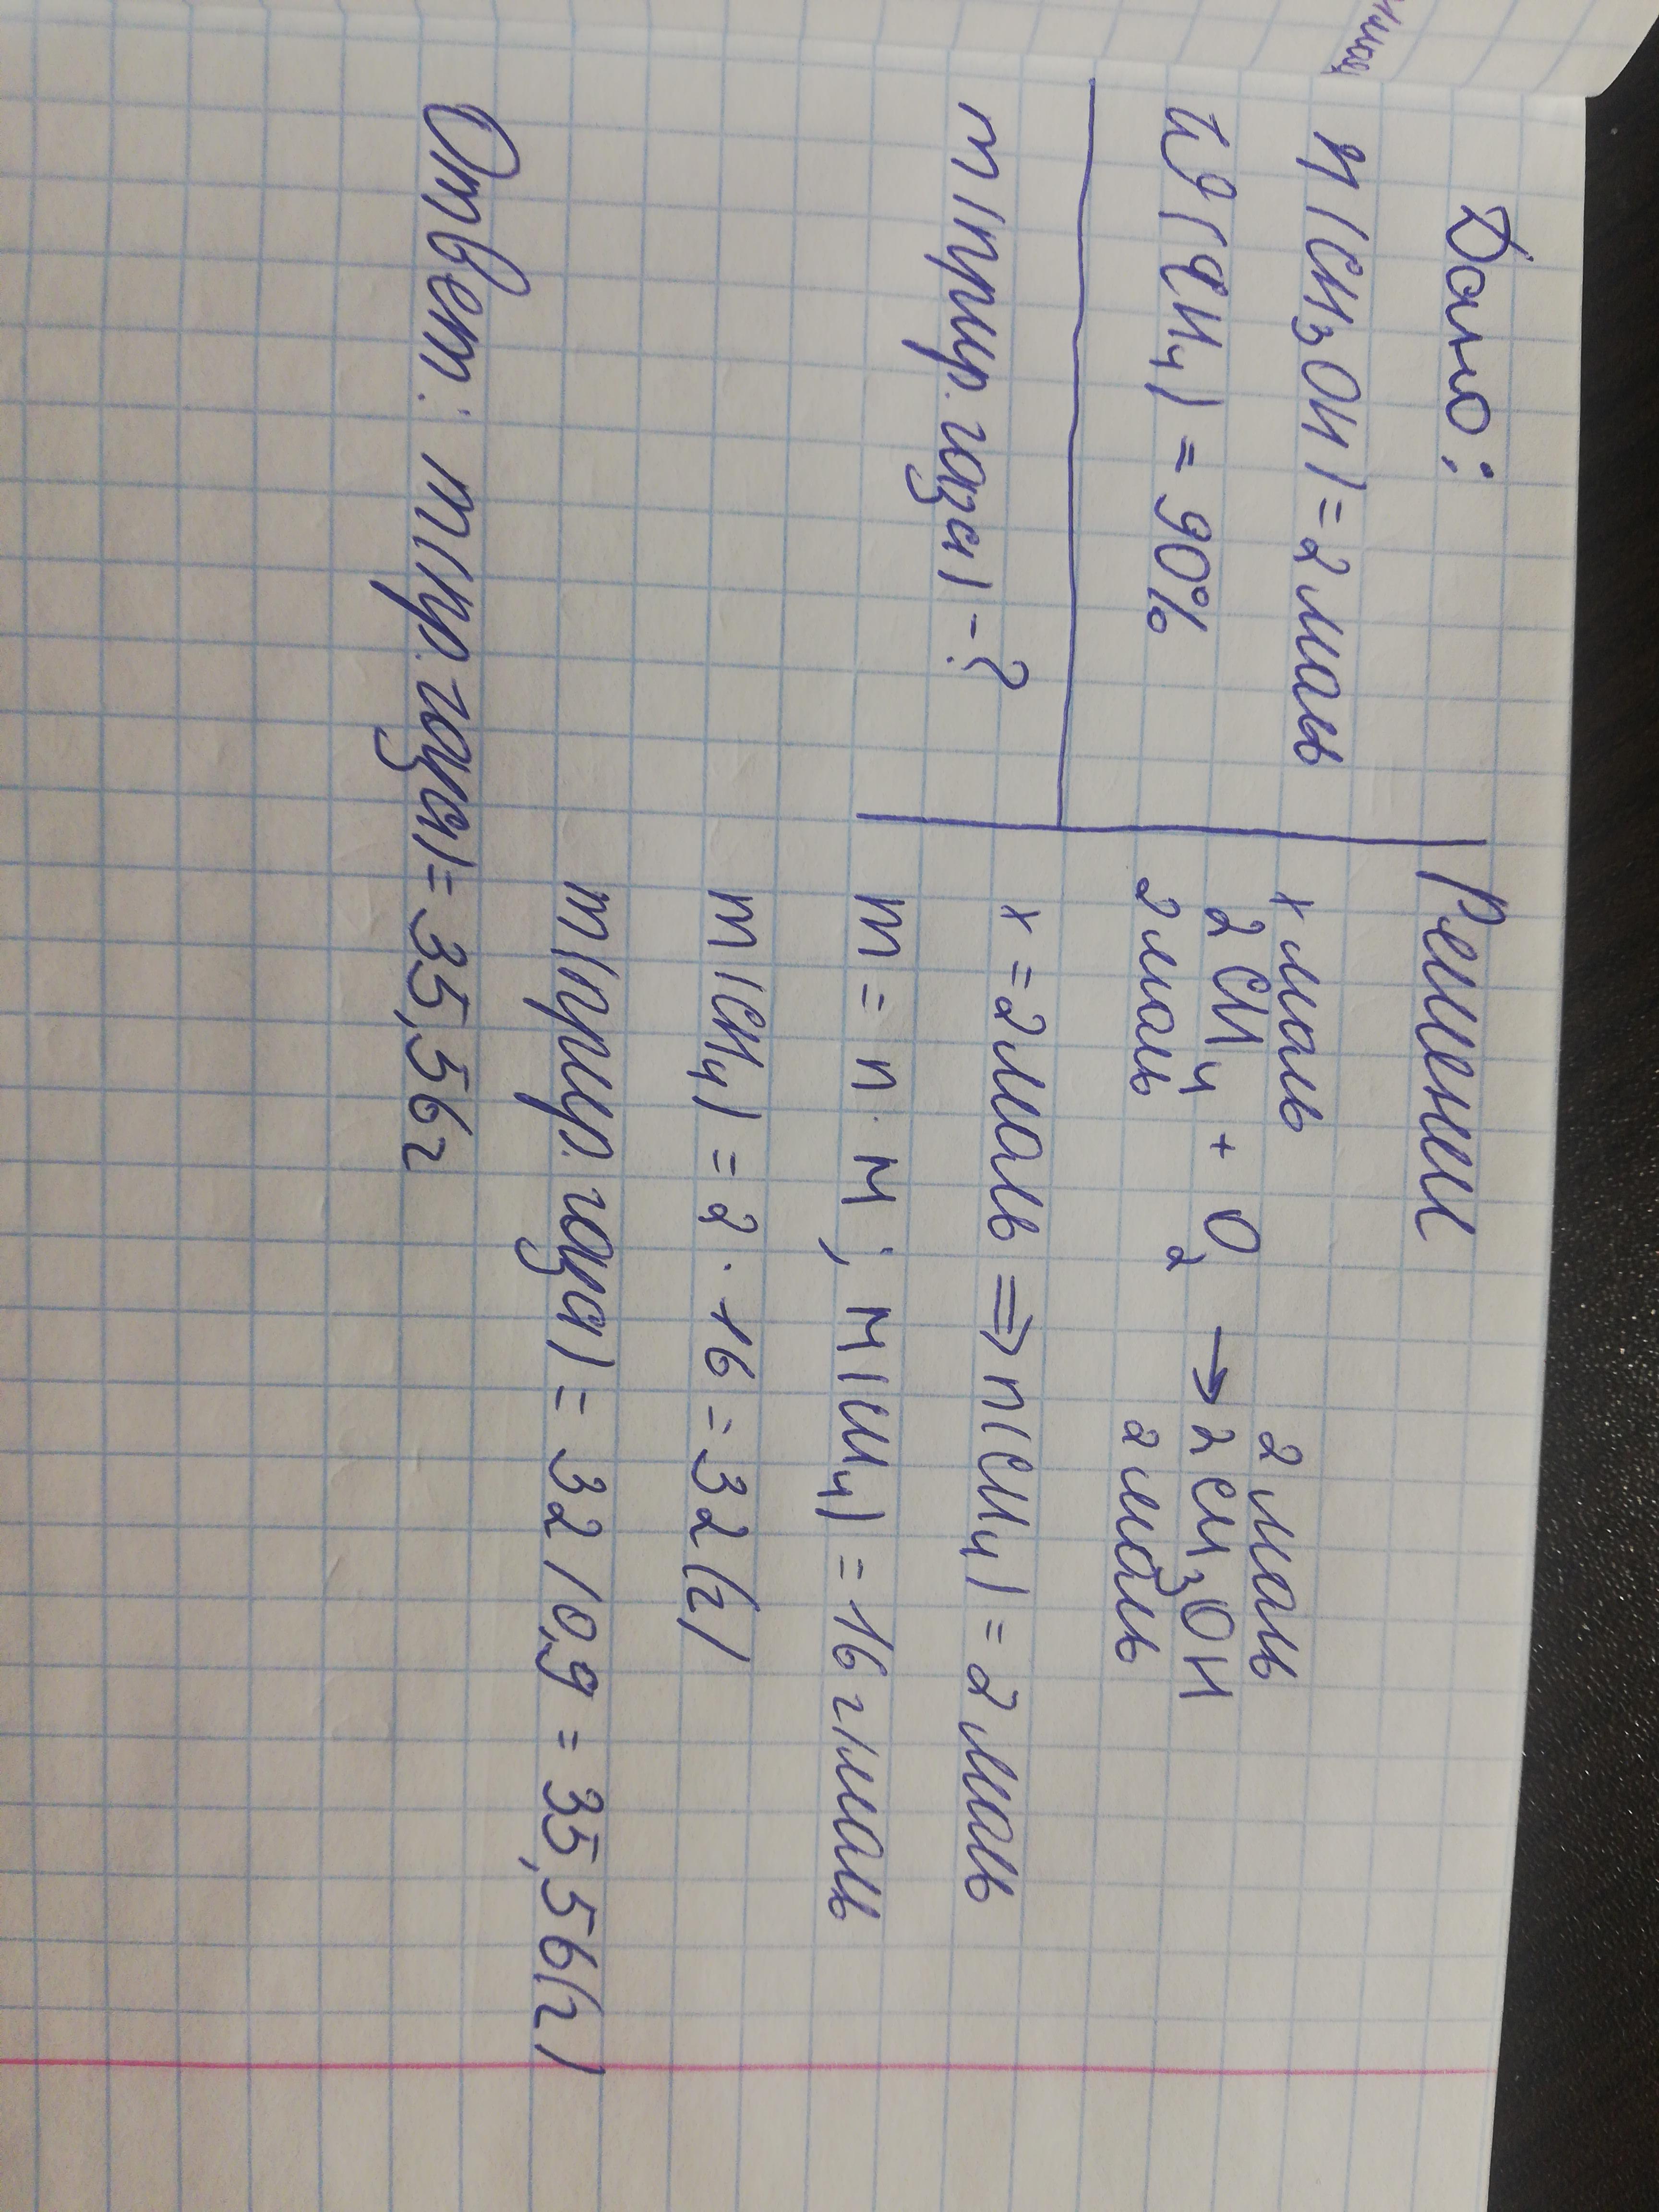 Дано:
n(CH3OH)=2моль
ω(CH4)=90%
m(прир.газа)-?
Решение
x моль 2 моль
2CH4 + O2 → 2CH3OH
2 моль 2 моль
x=2моль ⇒ n(CH4)=2 моль
m = n · M; M(CH4)=16 г/моль
m(CH4)=2·16=32(г)
m(прир.газа)=32/0,9=35,56(г)
Ответ: m(пр.газа)=35,56г